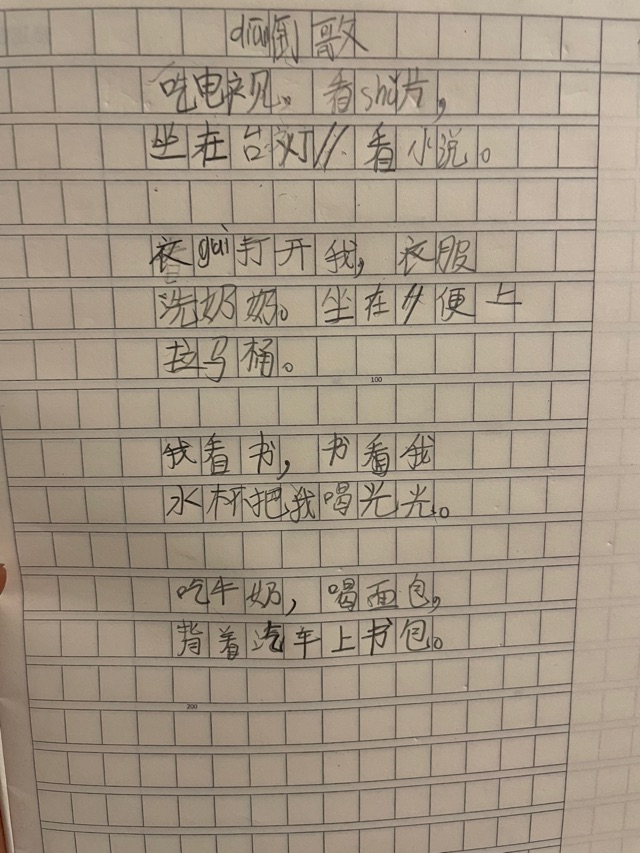 diān倒歌
吃电视。看shǔ片,
坐在台灯//看小说。
衣guì打开我,衣服
洗奶奶。坐在//便上
拉马桶。
100
我看书,书看我
水杯把我喝光光。
吃牛奶,喝面包,
背着汽车上书包。
200